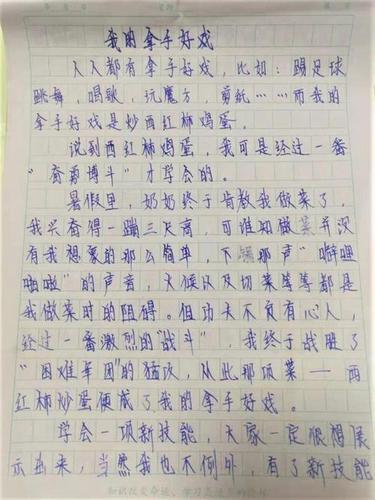 我的拿手好戏
人人都有拿手好戏，比如：踢足球
跳舞，唱歌，玩魔方，剪纸……而我的
拿手好戏是炒西红柿鸡蛋。
说到西红柿鸡蛋，我可是经过一番
“奋勇搏斗”才学会的。
暑假里，奶奶终于肯教我做菜了，
我兴奋得一蹦三尺高，可谁知做菜并没
有我想象的那么简单，下锅那声“噼哩
啪啦”的声音，火候以及切菜等等都是
我做菜时的阻碍。但功夫不负有心人，
经过一番激烈的“战斗”，我终于战胜了
“困难军团”的猛攻，从此那项菜——西
红柿炒蛋便成了我的拿手好戏。
学会一项新技能，大家一定很想展
示出来，当然我也不例外，有了新技能
知识改变命运，学习